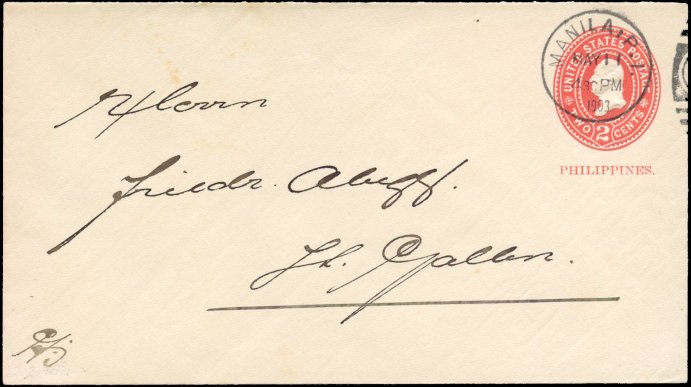 MANILA P.I.
MAY 11
4 30 PM
1903
UNITED STATES POSTAGE
TWO 2 CENTS
PHILIPPINES.
Herrn
Friedr.
St. Gallen.